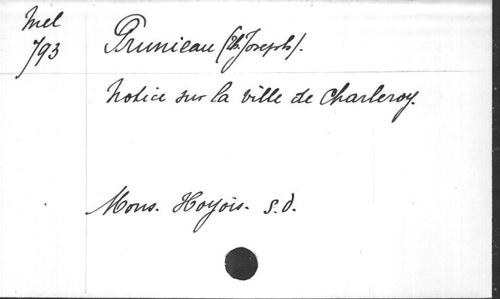 Mel
793
Prunieau (Ch. Joseph).
Notice sur la ville de Charleroy.
Mons. Hoyois. s.d.